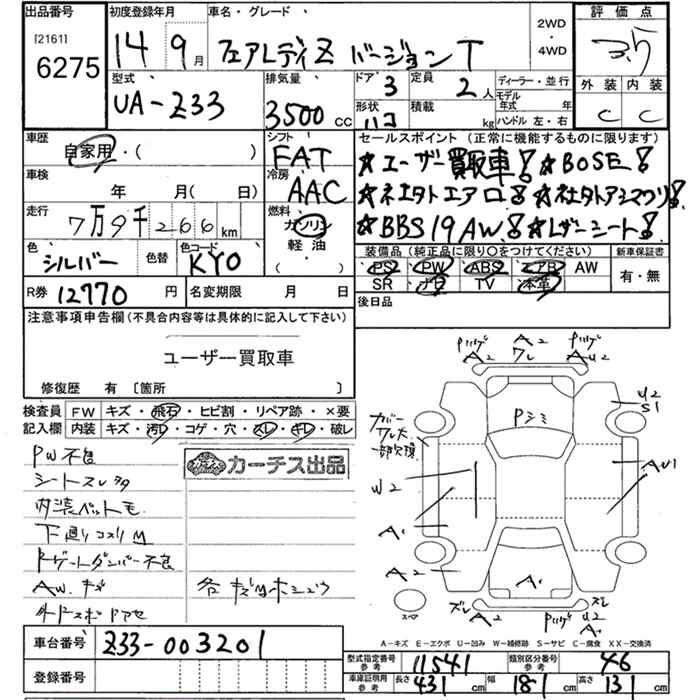 出品番号 初度登録年月 車名・グレード 2WD・4WD 評価点
[2161] 6275 14 9月 フェアレディZ バージョンT 3.5
型式 排気量 ドア 定員 ディーラー・並行 外装 内装
UA-Z33 3500cc 3 2人 モデル年式 年 C C
形状 積載 kg ハンドル 左・右
車歴 シフト セールスポイント (正常に機能するものに限ります)
自家用・( ) FAT ★ユーザー買取車! ★BOSE!
車検 年 月( 日) 冷房 AAC
走行 7万9千266km 燃料 ガソリン 軽油 ( ) ★BBS19AW! ★レザーシート!
色 シルバー 色替 色コード KY0
装備品 (純正品に限り〇をつけてください) 新車保証書
PS PW ABS エアB AW 有・無
SR ナビ TV 本革
R券 12770円 名変期限 月 日 後日品
注意事項申告欄(不具合内容等は具体的に記入して下さい)
ユーザー買取車
修復歴 有 〔箇所 〕
検査員 FW キズ・飛石・ヒビ割・リペア跡・×要
記入欄 内装 キズ・汚レ・コゲ・穴・スレ・ギレ・破レ
PW不良
カーチス出品
シートスレ
内装ペットモ
下廻りコスリM
Rゲートダンパー不良
AW.キズ
各キズ
車台番号 Z33-003201
登録番号
A2 A2 AU2
Pシミ
U2
S1
カバー
ワレ大
一部欠損
W2
AU1
A1
A2
A1
スペア
ズレ A2 ズレ U2 A2
A-キズ E-エクボ U-凹み W-補修跡 S-サビ C-腐食 XX-交換済
型式指定番号 参考 11541 類別区分番号 参考 46
車庫証明用 参考 長さ 431cm 幅 181cm 高さ 131cm